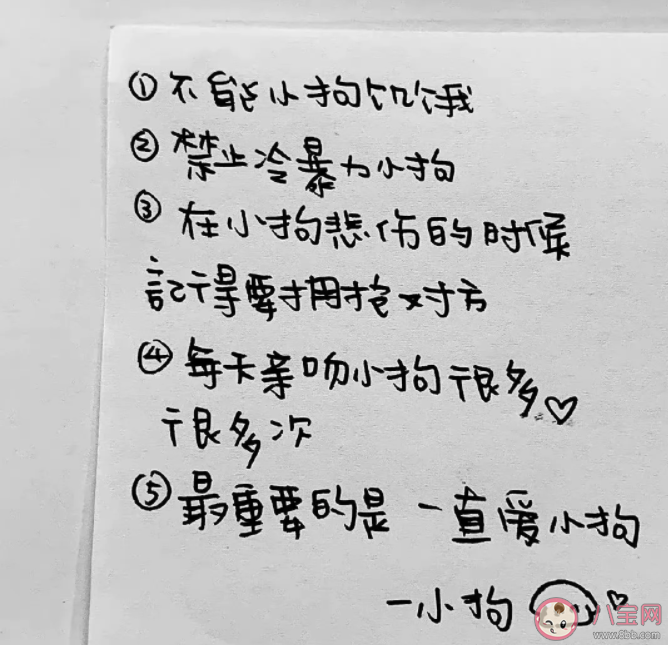 ①不能小狗饥饿
②禁止冷暴力小狗
③在小狗悲伤的时候
記得要拥抱对方
④每天亲吻小狗很多
很多次
⑤最重要的是一直爱小狗
一小狗
八宝网
www.8bb.com